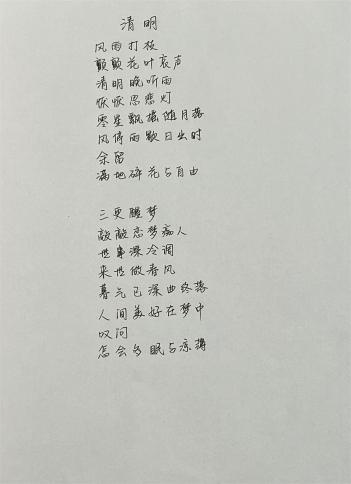 清明
风雨打板
颤颤花叶哀声
清明晚听雨
恹恹思悲灯
零星飘摇随月落
风停雨歇日出时
余留
满地碎花与自由
三更醒梦
敲敲恋梦痴人
世事深冷调
来世做春风
暮气已深曲终落
人间美好在梦中
叹问
怎会多眠与凉薄